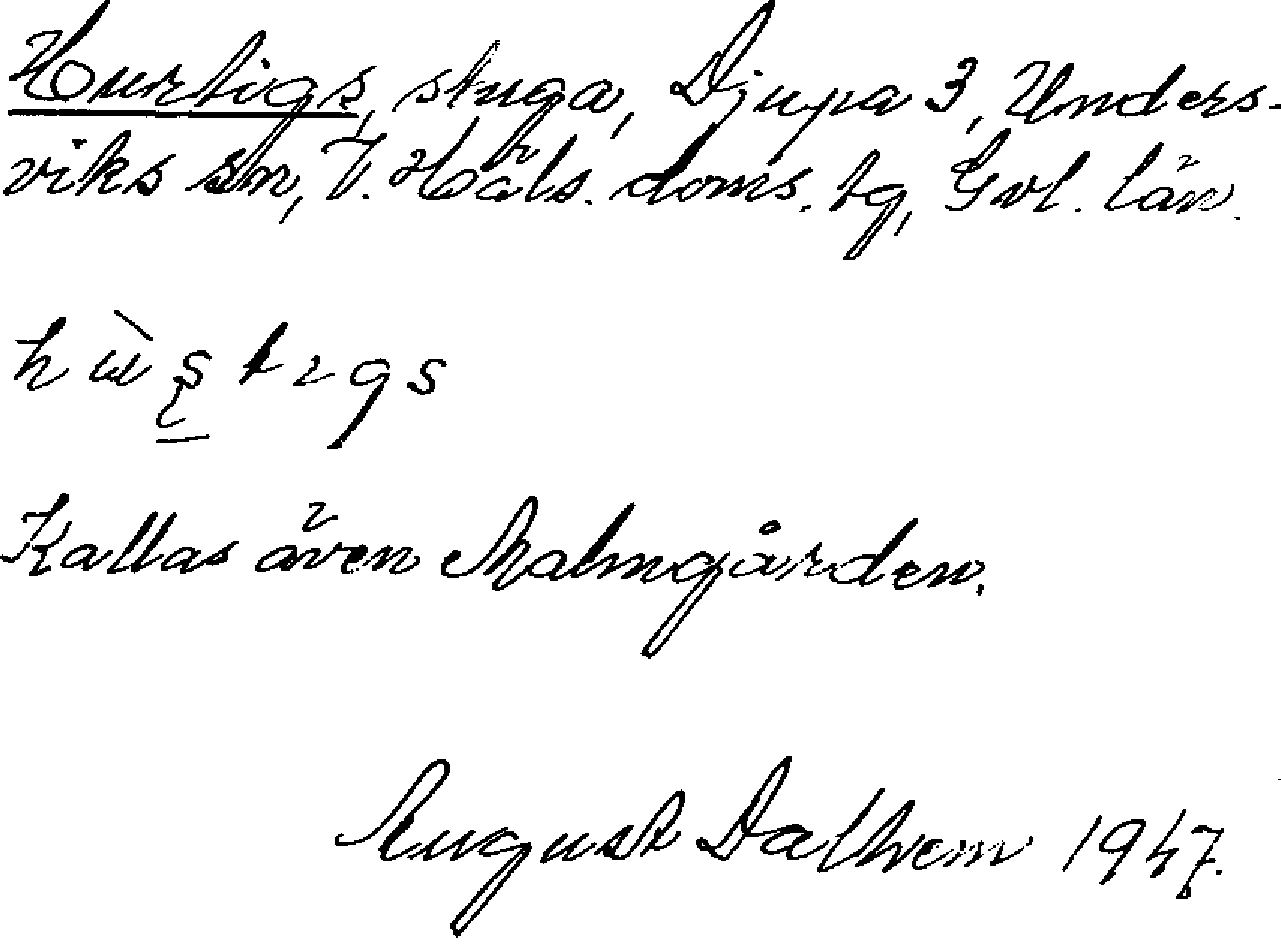 Hurtigs, stuga, Djupa 3, Unders-
viks sn, V. Häls. doms. tg, Gvl. län.
Kallas även Malmgården.
August Dalhem 1947.